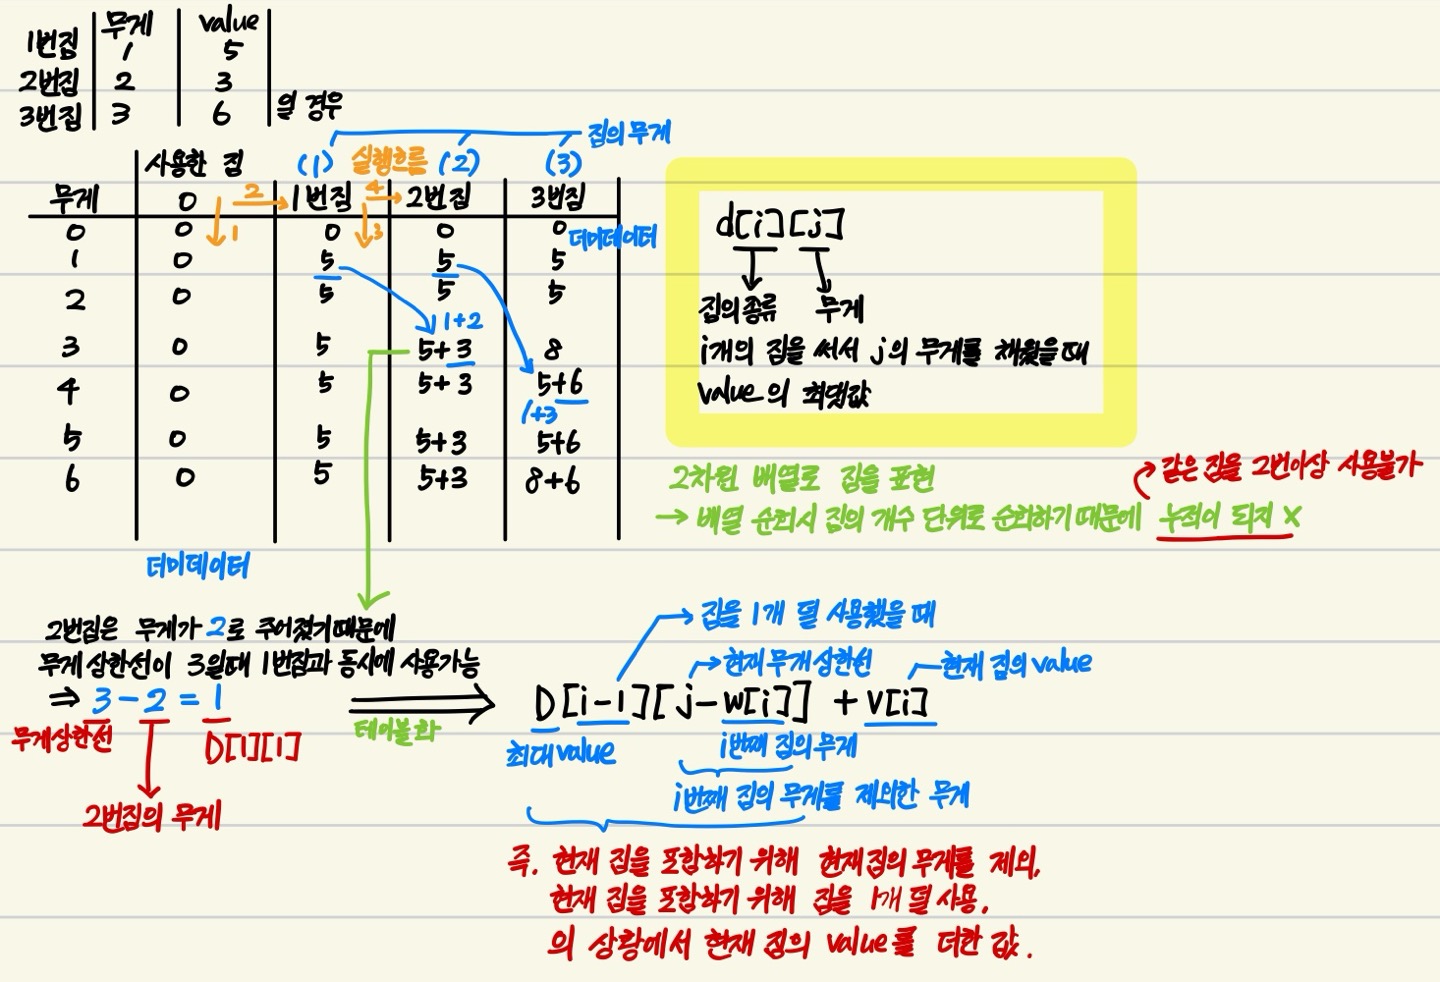 무게 value
1번짐 1 5
2번짐 2 3
3번짐 3 6 의 경우
짐의 무게
사용한 짐 (1) 실행흐름 (2) (3)
무게 0 2 1번짐 4 2번짐 3번짐
0 0 1 0 3 0 0 더미데이터
1 0 5 5 5
2 0 5 5 5
1+2
3 0 5 5+3 8
4 0 5 5+3 5+6
1+3
5 0 5 5+3 5+6
6 0 5 5+3 8+6
더미데이터
d[i][j]
짐의종류 무게
i개의 짐을 써서 j의 무게를 채웠을때
value의 최댓값
2차원 배열로 짐을 표현
같은 짐을 2번이상 사용불가
→ 배열 순회시 짐의 개수 단위로 순회하기때문에 누적이 되지 X
2번짐은 무게가 2로 주어졌기때문에
무게 상한선이 3일때 1번짐과 동시에 사용가능
⇒ 3-2=1
무게상한선 D[1][1]
2번짐의 무게
테이블화
→ 짐을 1개 덜 사용했을 때
→ 현재 무게 상한선 현재 짐의 value
D[i-1][j-w[i]] + v[i]
최대 value i번째 짐의 무게
i번째 짐의 무게를 제외한 무게
즉. 현재 짐을 포함하기 위해 현재짐의 무게를 제외,
현재 짐을 포함하기 위해 짐을 1개 덜 사용,
의 상황에서 현재 짐의 value를 더한 값.